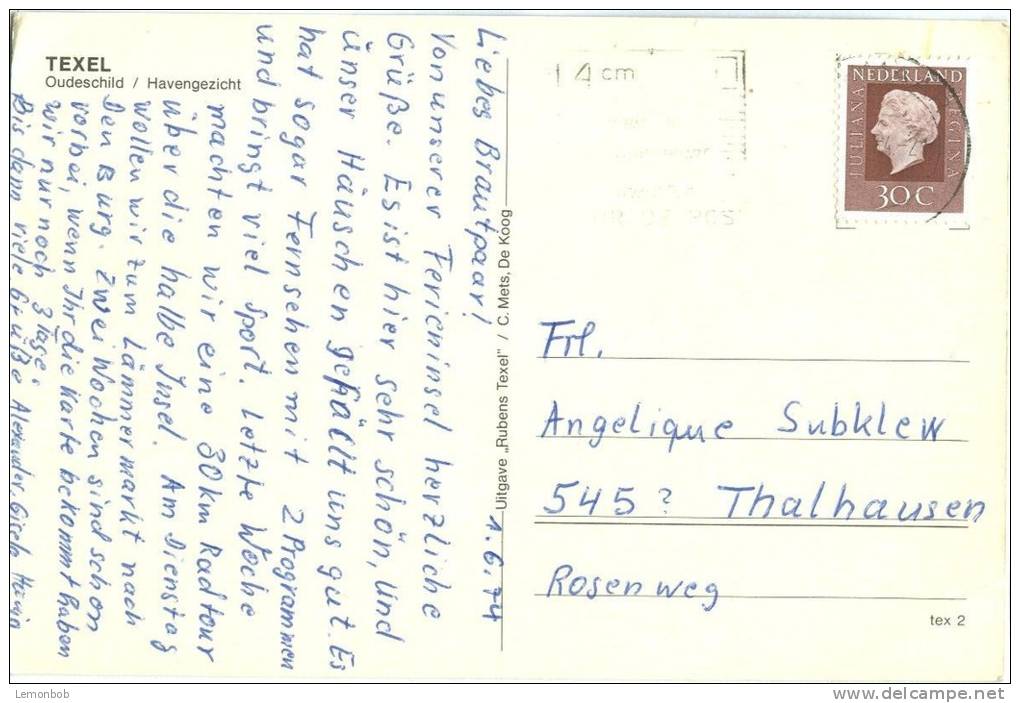 TEXEL
Oudeschild / Havengezicht
Liebes Brautpaar!
1.6.74
Von unserer Ferieninsel herzliche
Grüße. Es ist hier sehr schön, und
unser Häuschen gefällt uns gut. Es
hat sogar Fernsehen mit 2 Programmen
und bringt viel Sport. Letzte Woche
machten wir eine 30 km Radtour
über die halbe Insel. Am Dienstag
wollen wir zum Lämmermarkt nach
Den Burg. Zwei Wochen sind schon
vorbei, wenn Ihr die Karte bekommt haben
wir nur noch 3 Tage.
Bis dann viele Grüße Alexander, Gisela
Uitgave „Rubens Texel” / C. Mets, De Koog
4 cm
NEDERLAND
JULIANA REGINA
30 C
Frl.
Angelique Subklew
545? Thalhausen
Rosenweg
tex 2
Lemonbob
www.delcampe.net